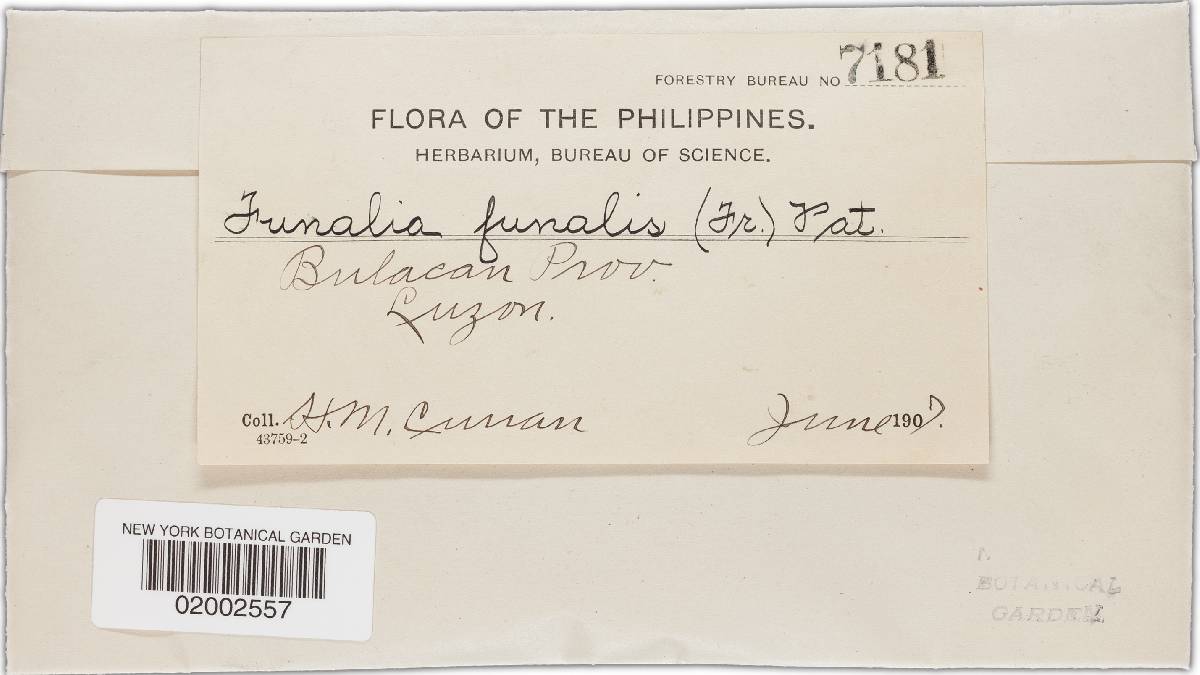 FORESTRY BUREAU NO 7181
FLORA OF THE PHILIPPINES.
HERBARIUM, BUREAU OF SCIENCE.
Funalia funalis (Fr.) Pat.
Bulacan Prov.
Luzon.
Coll. H. M. Curran June 1907.
43759-2
NEW YORK BOTANICAL GARDEN
02002557
BOTANICAL
GARDEN